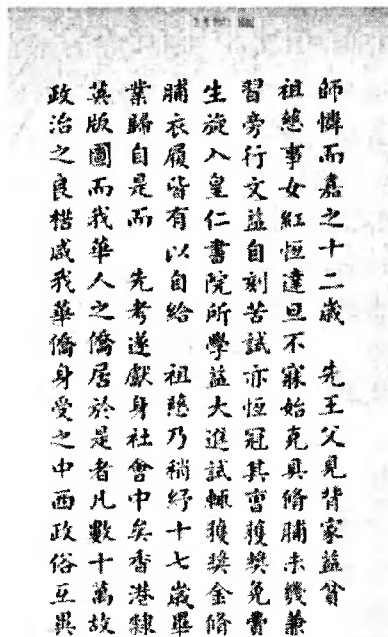 師憐而嘉之十二歲　先王父見背家益貧
祖慈事女紅恒達旦不寐始克具脩脯未幾兼
習旁行文益自刻苦試亦恒冠其曹獲獎免費
生旋入皇仁書院所學益大進試輒獲獎金脩
脯衣履皆有以自給　祖慈乃稍紓十七歲畢
業歸自是而　先考遂獻身社會中矣香港隸
英版圖而我華人之僑居於是者凡數十萬故
政治之良楛咸我華僑身受之中西政俗互異